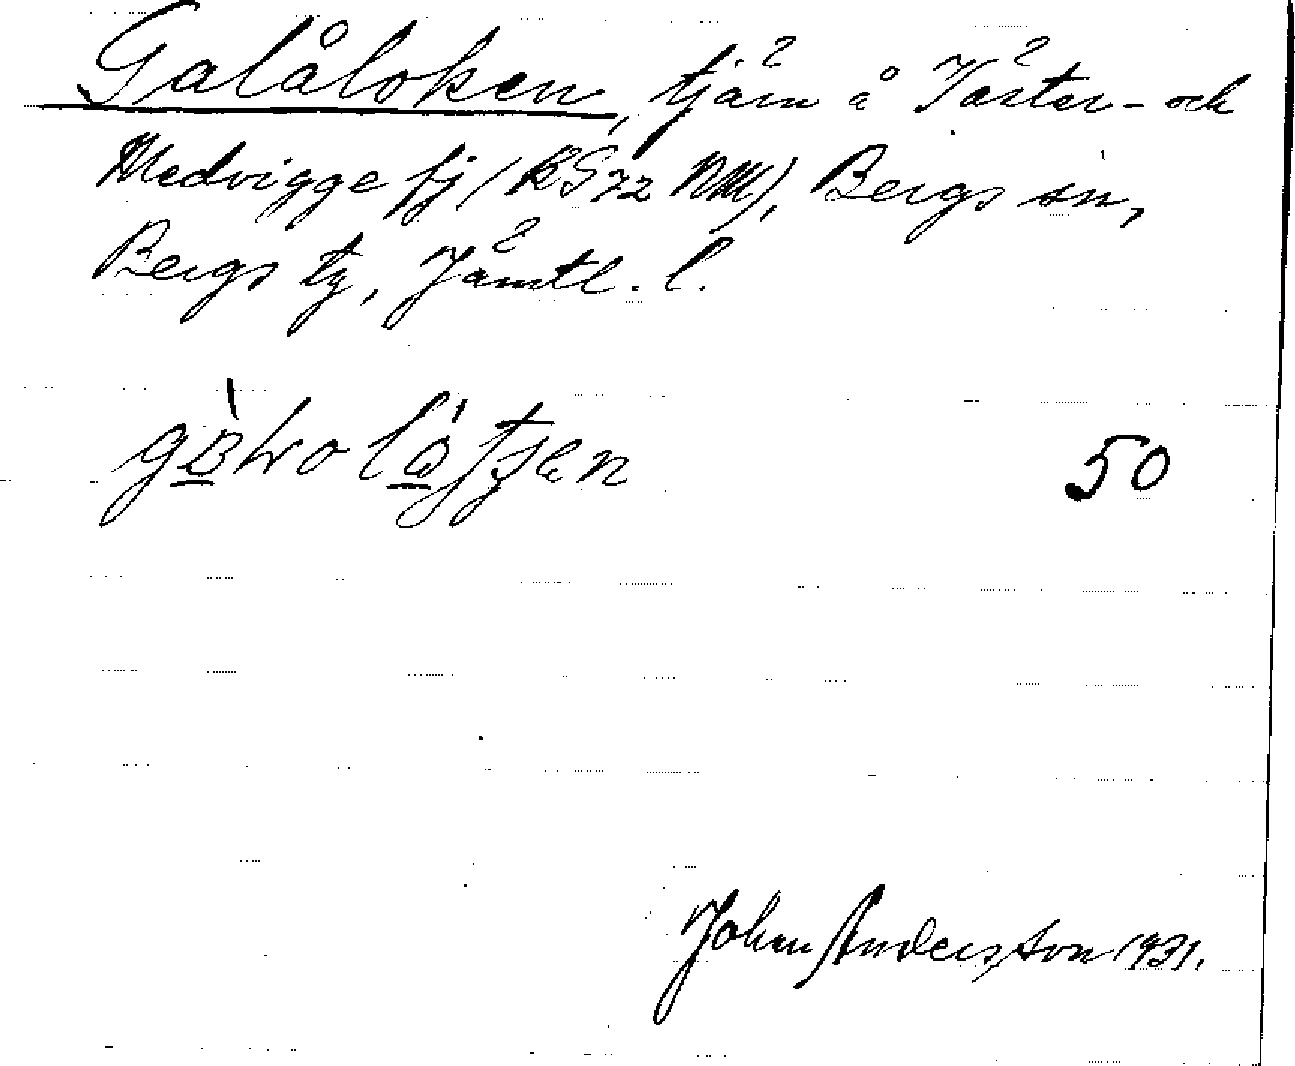 Galåloken, tjärn å Väster- och
Medvigge fj (KS72 NM), Bergs sn,
Bergs tg, Jämtl. l.
50
Johan Andersson 1931.